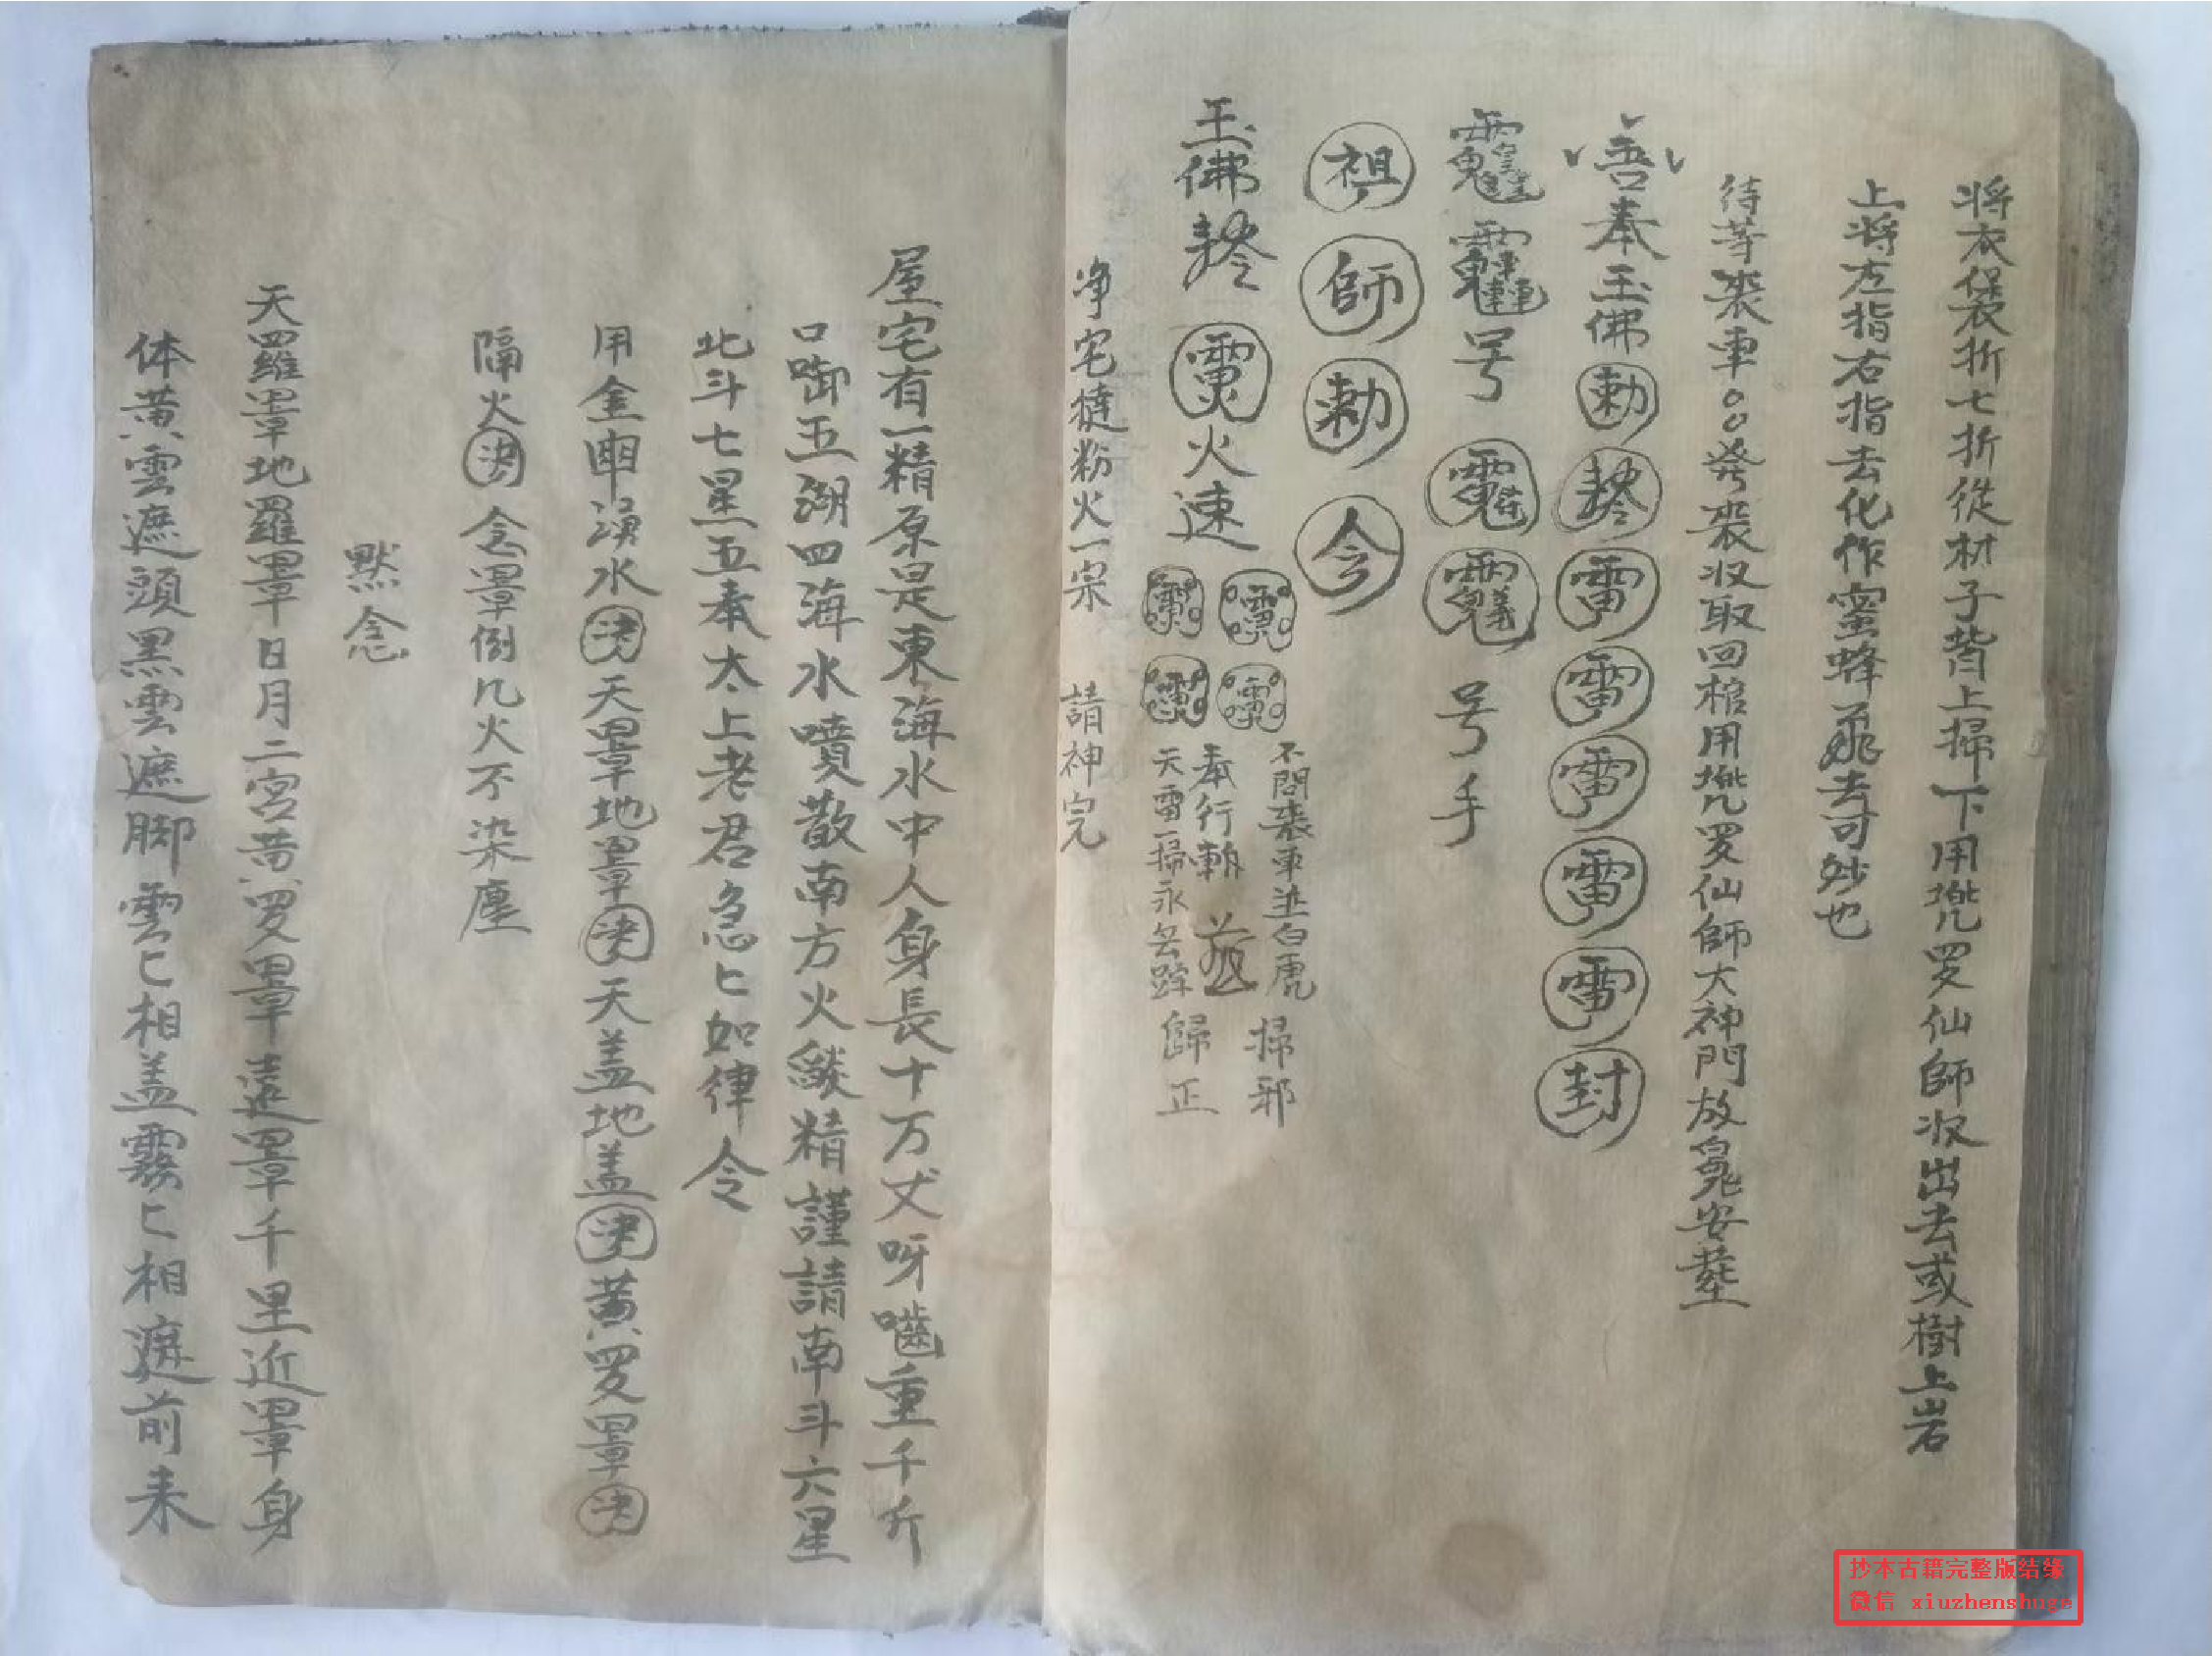 將衣袋折七折從材子背上掃下用攪罗仙師收出去或樹上岩
上將左指右指去化作蜜蜂飛去可妙也
待等喪車〇〇發喪收取回棺用攪罗仙師大神門放兔安葬
奉玉佛勅雷雷雷雷雷封
号号手
祖師勅令
玉佛火速
不問喪車並白虎掃邪
奉行
天雷一掃永無踪歸正
净宅撻粉火一宗 請神完
屋宅有一精原是東海水中人身長十万丈呀嚙重千斤
口啣五湖四海水噴散南方火燄精謹請南斗六星
北斗七星五奉太上老君急匕如律令
用金車湧水決天罩地罩決天盖地盖決黄罗罩決
隔火決令罩倒凡火不染塵
默念
天羅罩地羅罩日月二宫黄罗罩遠罩千里近罩身
体黄雲遮頭黑雲遮脚雲匕相盖霧匕相遮前来
抄本古籍完整版结缘
微信 xiuzhenshuge